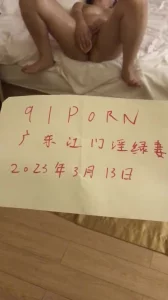 91PORN
广东江门淫绿妻
2023年3月13日